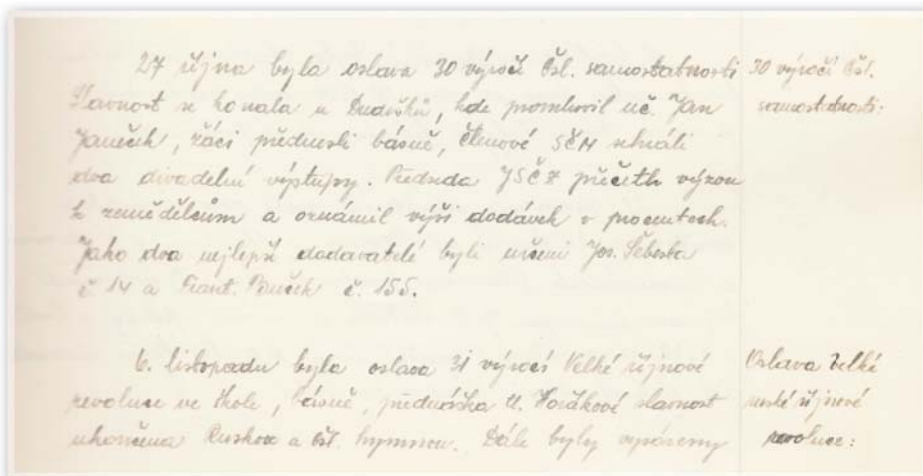 27 října byla oslava 30 výročí čsl. samostatnosti
Slavnost se konala u Dudušků, kde promluvil uč. Jan
Janeček, žáci přednesli básně, členové SČM sehráli
dva divadelní výstupy. Předseda JSČZ přečetl výzvu
k zemědělcům a oznámil výši dodávek v procentech.
Jako dva nejlepší dodavatelé byli určeni Jos. Šebesta
č 14 a Frant. č. 155.
30 výročí čsl.
samostatnosti.
6. listopadu byla oslava 31 výročí Velké říjnové
revoluce ve škole, básně, přednáška U. Horákové slavnost
ukončena Ruskou a čsl. hymnou. Dále byly
Oslava Velké
ruské říjnové
revoluce: